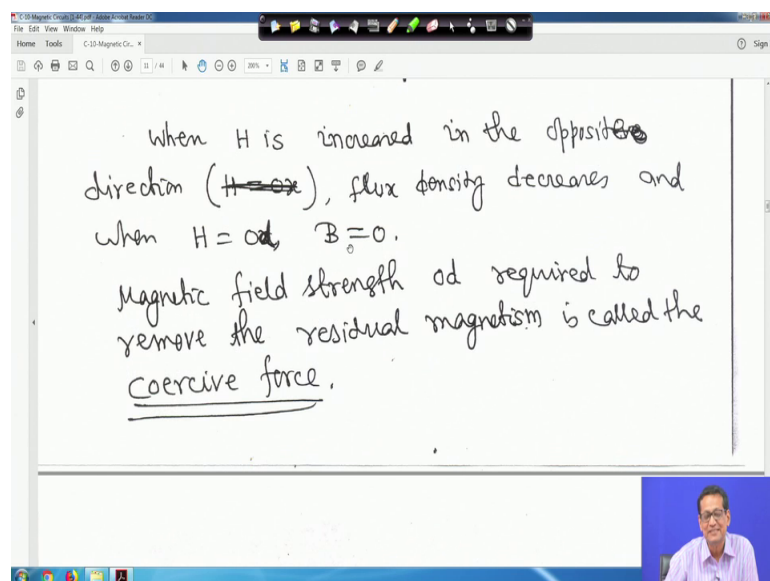 C-10-Magnetic Circuits (1-44).pdf - Adobe Acrobat Reader DC
File Edit View Window Help
Home Tools C-10-Magnetic Cir... × Sign
11 / 44 200%
When H is increased in the opposite
direction (H = ox), flux density decreases and
when H = od, B = 0.
Magnetic field strength od required to
remove the residual magnetism is called the
coercive force.